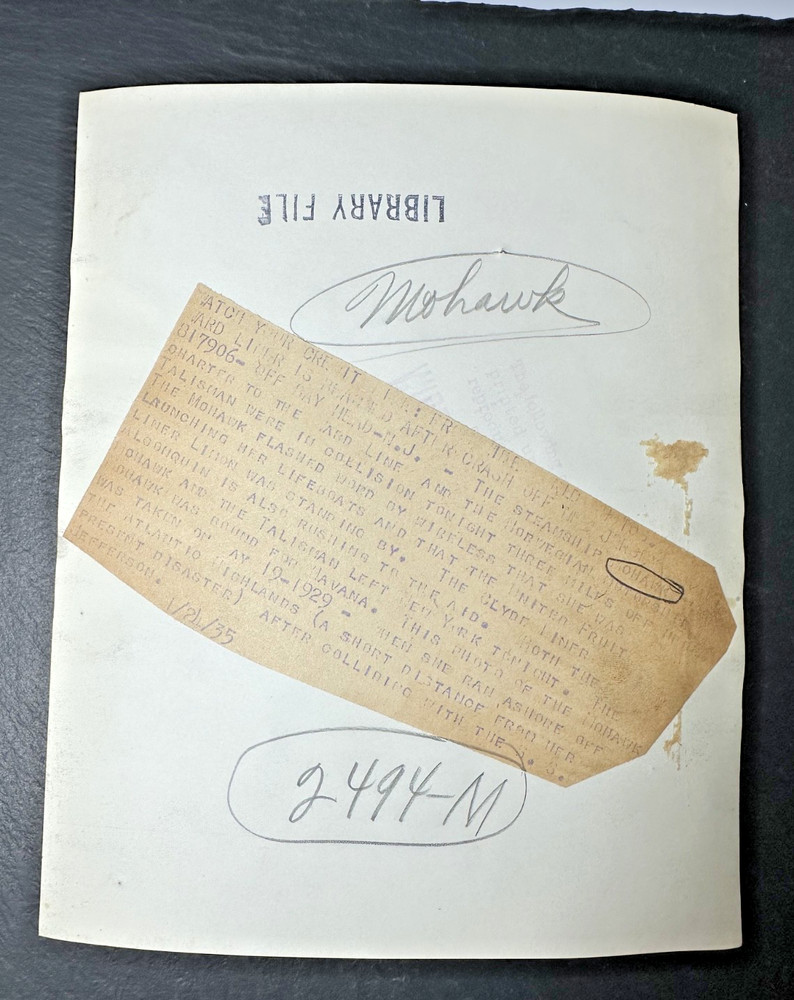 LIBRARY FILE
Mohawk
WARD LINER IS CRASHED AFTER CRASH OFF
817906- OFF BAY HEAD-N.J. - THE STEAMSHIP MOHAWK
CHARTER TO THE WARD LINE AND THE NORWEGIAN
TALISMAN WERE IN COLLISION TONIGHT THREE MILES OFF
THE MOHAWK FLASHED WORD BY WIRELESS THAT SHE WAS
LAUNCHING HER LIFEBOATS AND THAT THE UNITED FRUIT
LINER LIMON WAS STANDING BY. THE CLYDE LINER
ALGONQUIN IS ALSO RUSHING TO THE AID. BOTH THE
MOHAWK AND THE TALISMAN LEFT NEW YORK TONIGHT. THE
MOHAWK WAS BOUND FOR HAVANA. THIS PHOTO OF THE MOHAWK
WAS TAKEN ON MAY 19-1929- WHEN SHE RAN ASHORE OFF
THE ATLANTIC HIGHLANDS (A SHORT DISTANCE FROM HER
PRESENT DISASTER) AFTER COLLIDING WITH THE S. S.
JEFFERSON.
1/24/35
2494-M